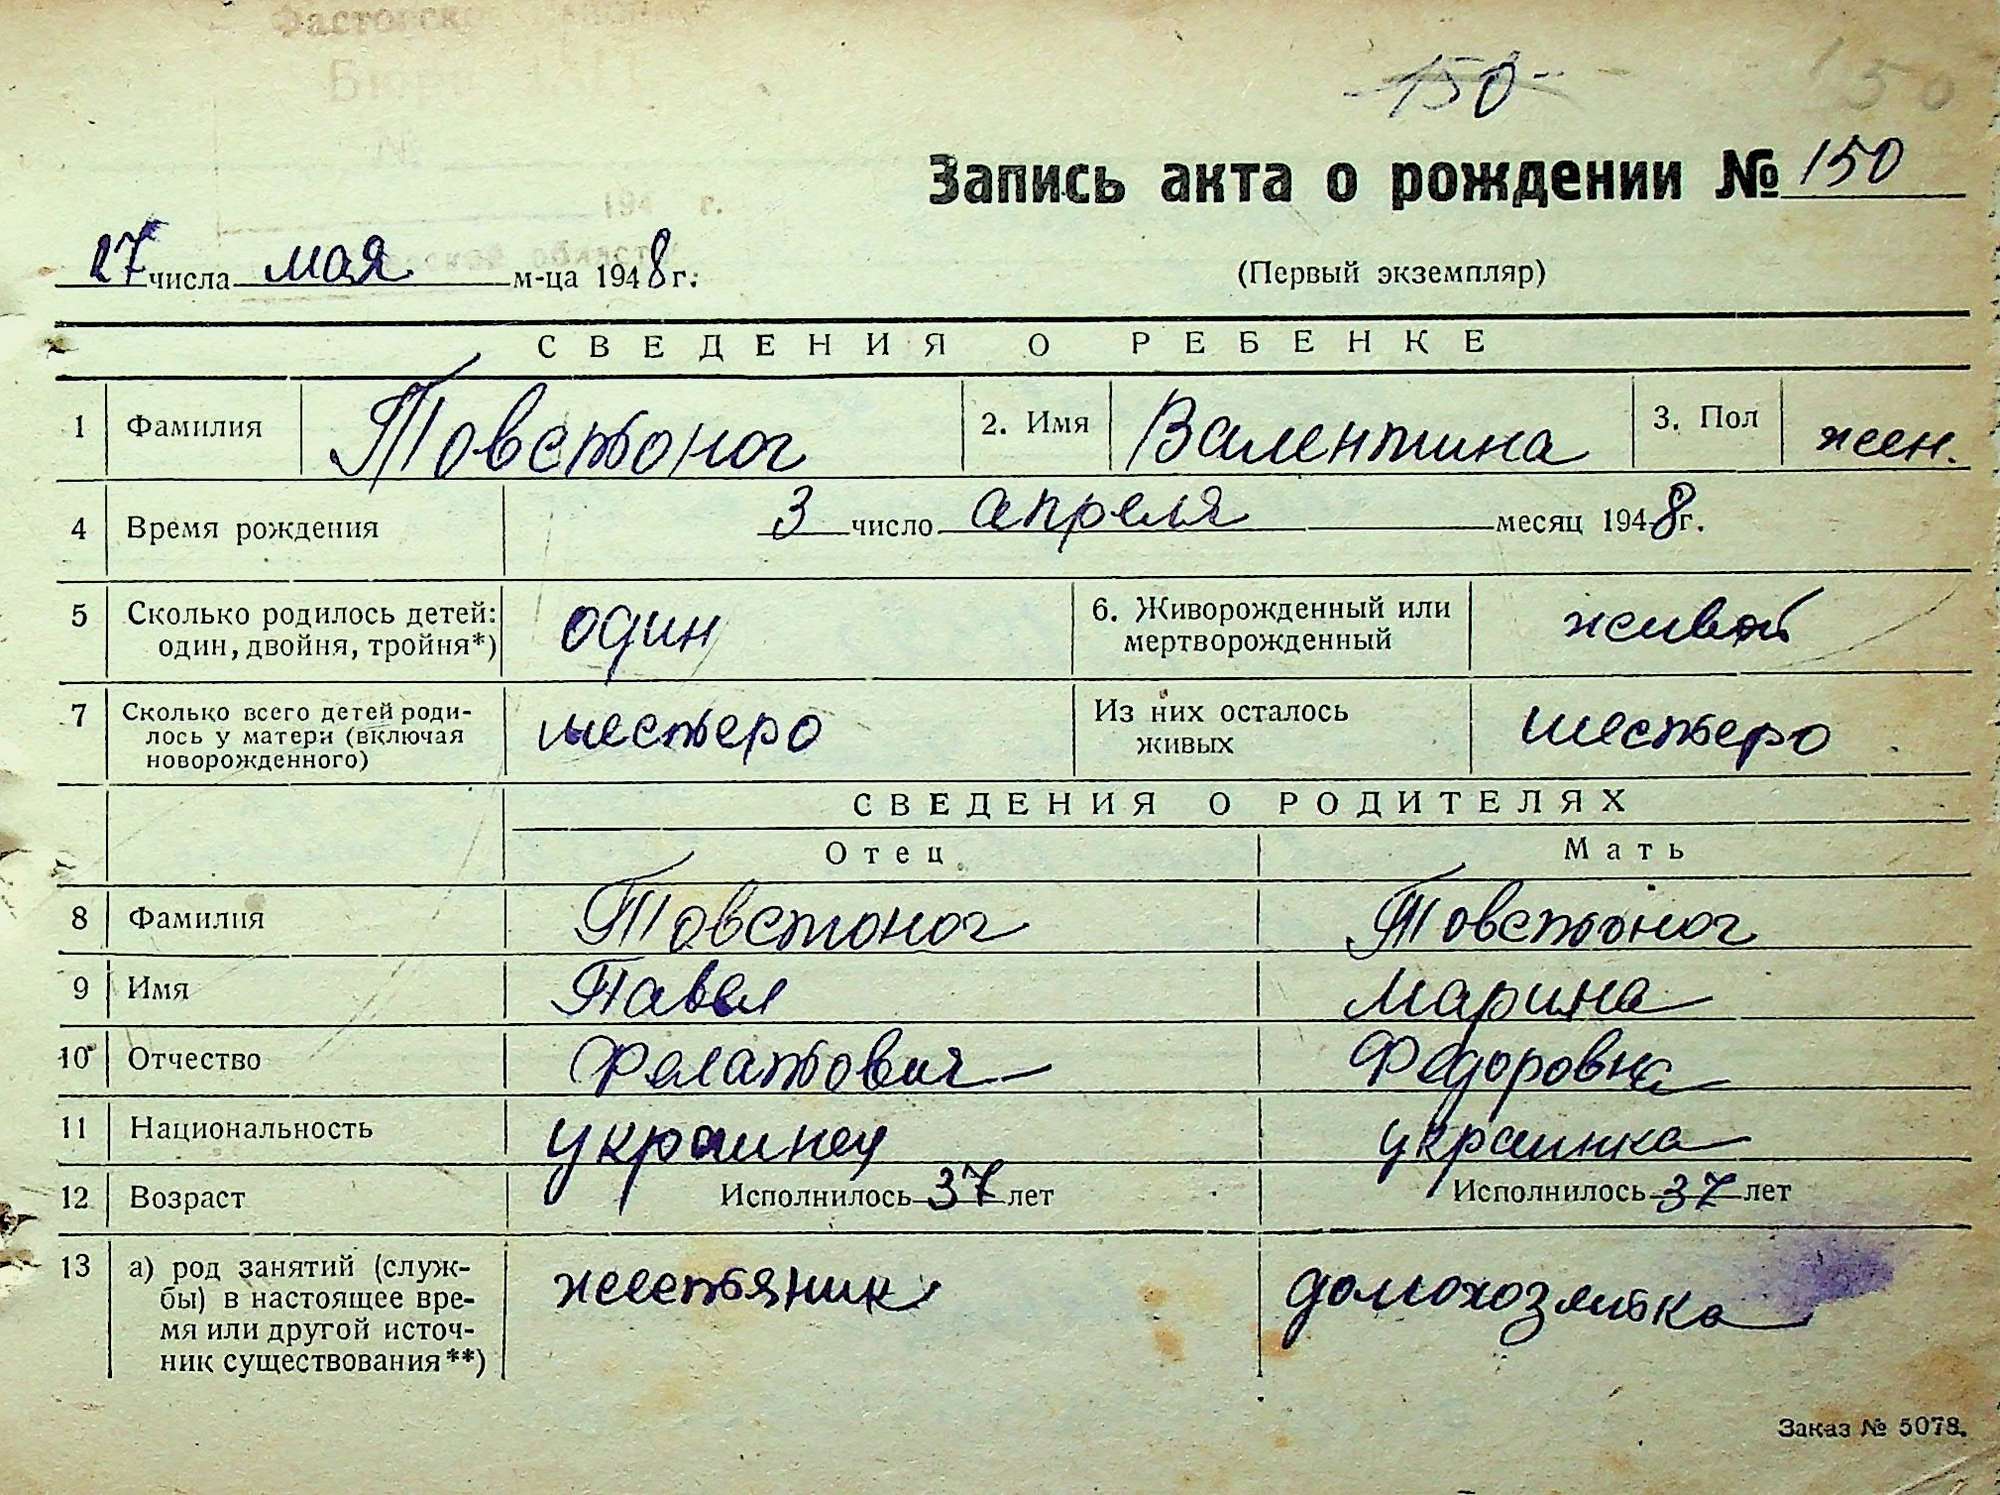 150
150
Запись акта о рождении № 150
27 числа мая м-ца 1948 г.
(Первый экземпляр)
СВЕДЕНИЯ О РЕБЕНКЕ
1 Фамилия Товстоног 2. Имя Валентина 3. Пол жен.
4 Время рождения 3 число апреля месяц 1948 г.
5 Сколько родилось детей: один 6. Живорожденный или живой
один, двойня, тройня*) мертворожденный
7 Сколько всего детей роди- шестеро Из них осталось шестеро
лось у матери (включая живых
новорожденного)
СВЕДЕНИЯ О РОДИТЕЛЯХ
Отец Мать
8 Фамилия Товстоног Товстоног
9 Имя Павел Марина
10 Отчество Филатович Федоровна
11 Национальность украинец украинка
12 Возраст Исполнилось 37 лет Исполнилось 37 лет
13 а) род занятий (служ- жестяник домохозяйка
бы) в настоящее вре-
мя или другой источ-
ник существования**)
Заказ № 5078.